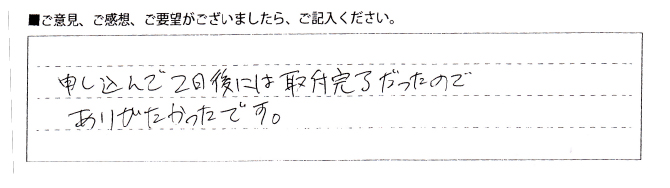 ■ご意見、ご感想、ご要望がございましたら、ご記入ください。
申し込んで2日後には取付完了だったので
ありがたかったです。